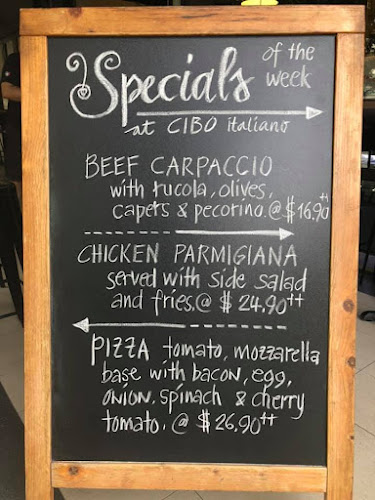 Specials of the week
at CIBO italiano
BEEF CARPACCIO
with rucola, olives,
capers & pecorino.@ $16.90++
CHICKEN PARMIGIANA
served with side salad
and fries.@ $24.90++
PIZZA tomato, mozzarella
base with bacon, egg,
ONION, spinach & cherry
tomato. @ $26.90++